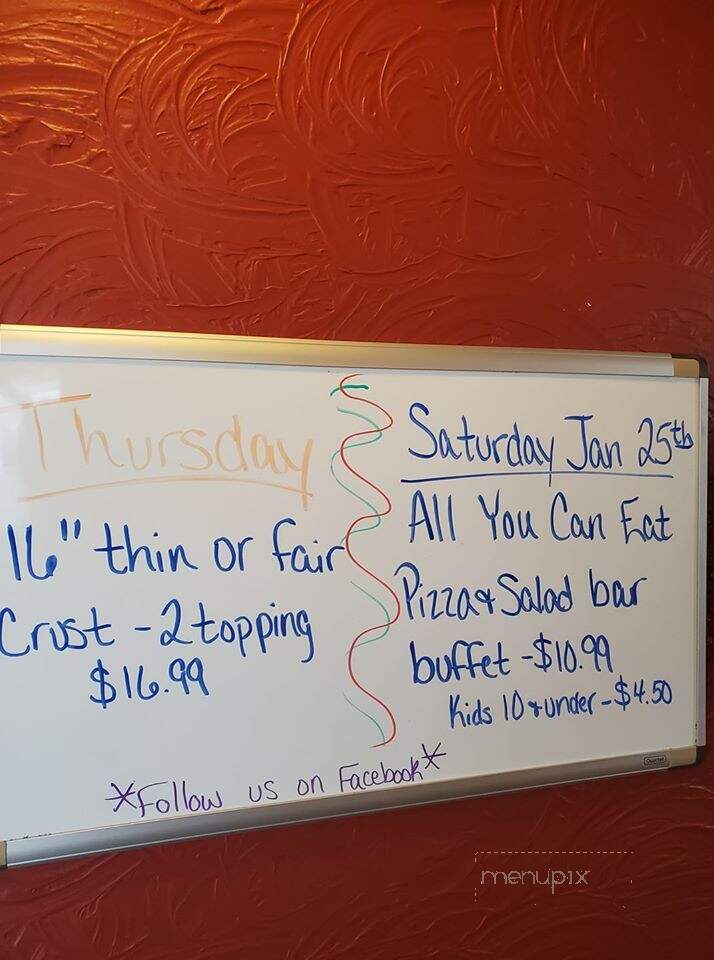 Thursday
16" thin or fair
Crust - 2 topping
$16.99
Saturday Jan 25th
All You Can Eat
Pizza & Salad bar
buffet - $10.99
Kids 10 & under - $4.50
*Follow us on Facebook*
Quartet
menupix